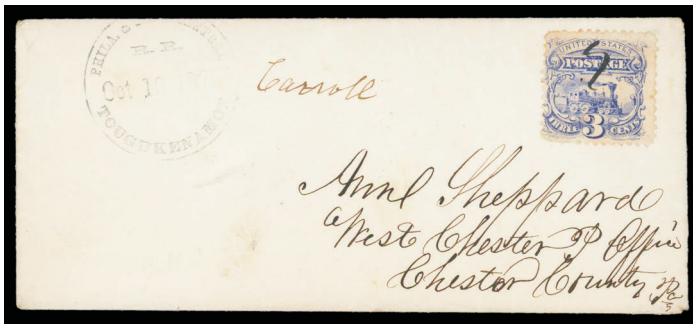 PHILA. &
R. R.
Oct 10
TOUGHKENAMON
Carroll
UNITED STATES
POSTAGE
THREE 3 CENTS
Ann Sheppard
West Chester P Office
Chester County Pa